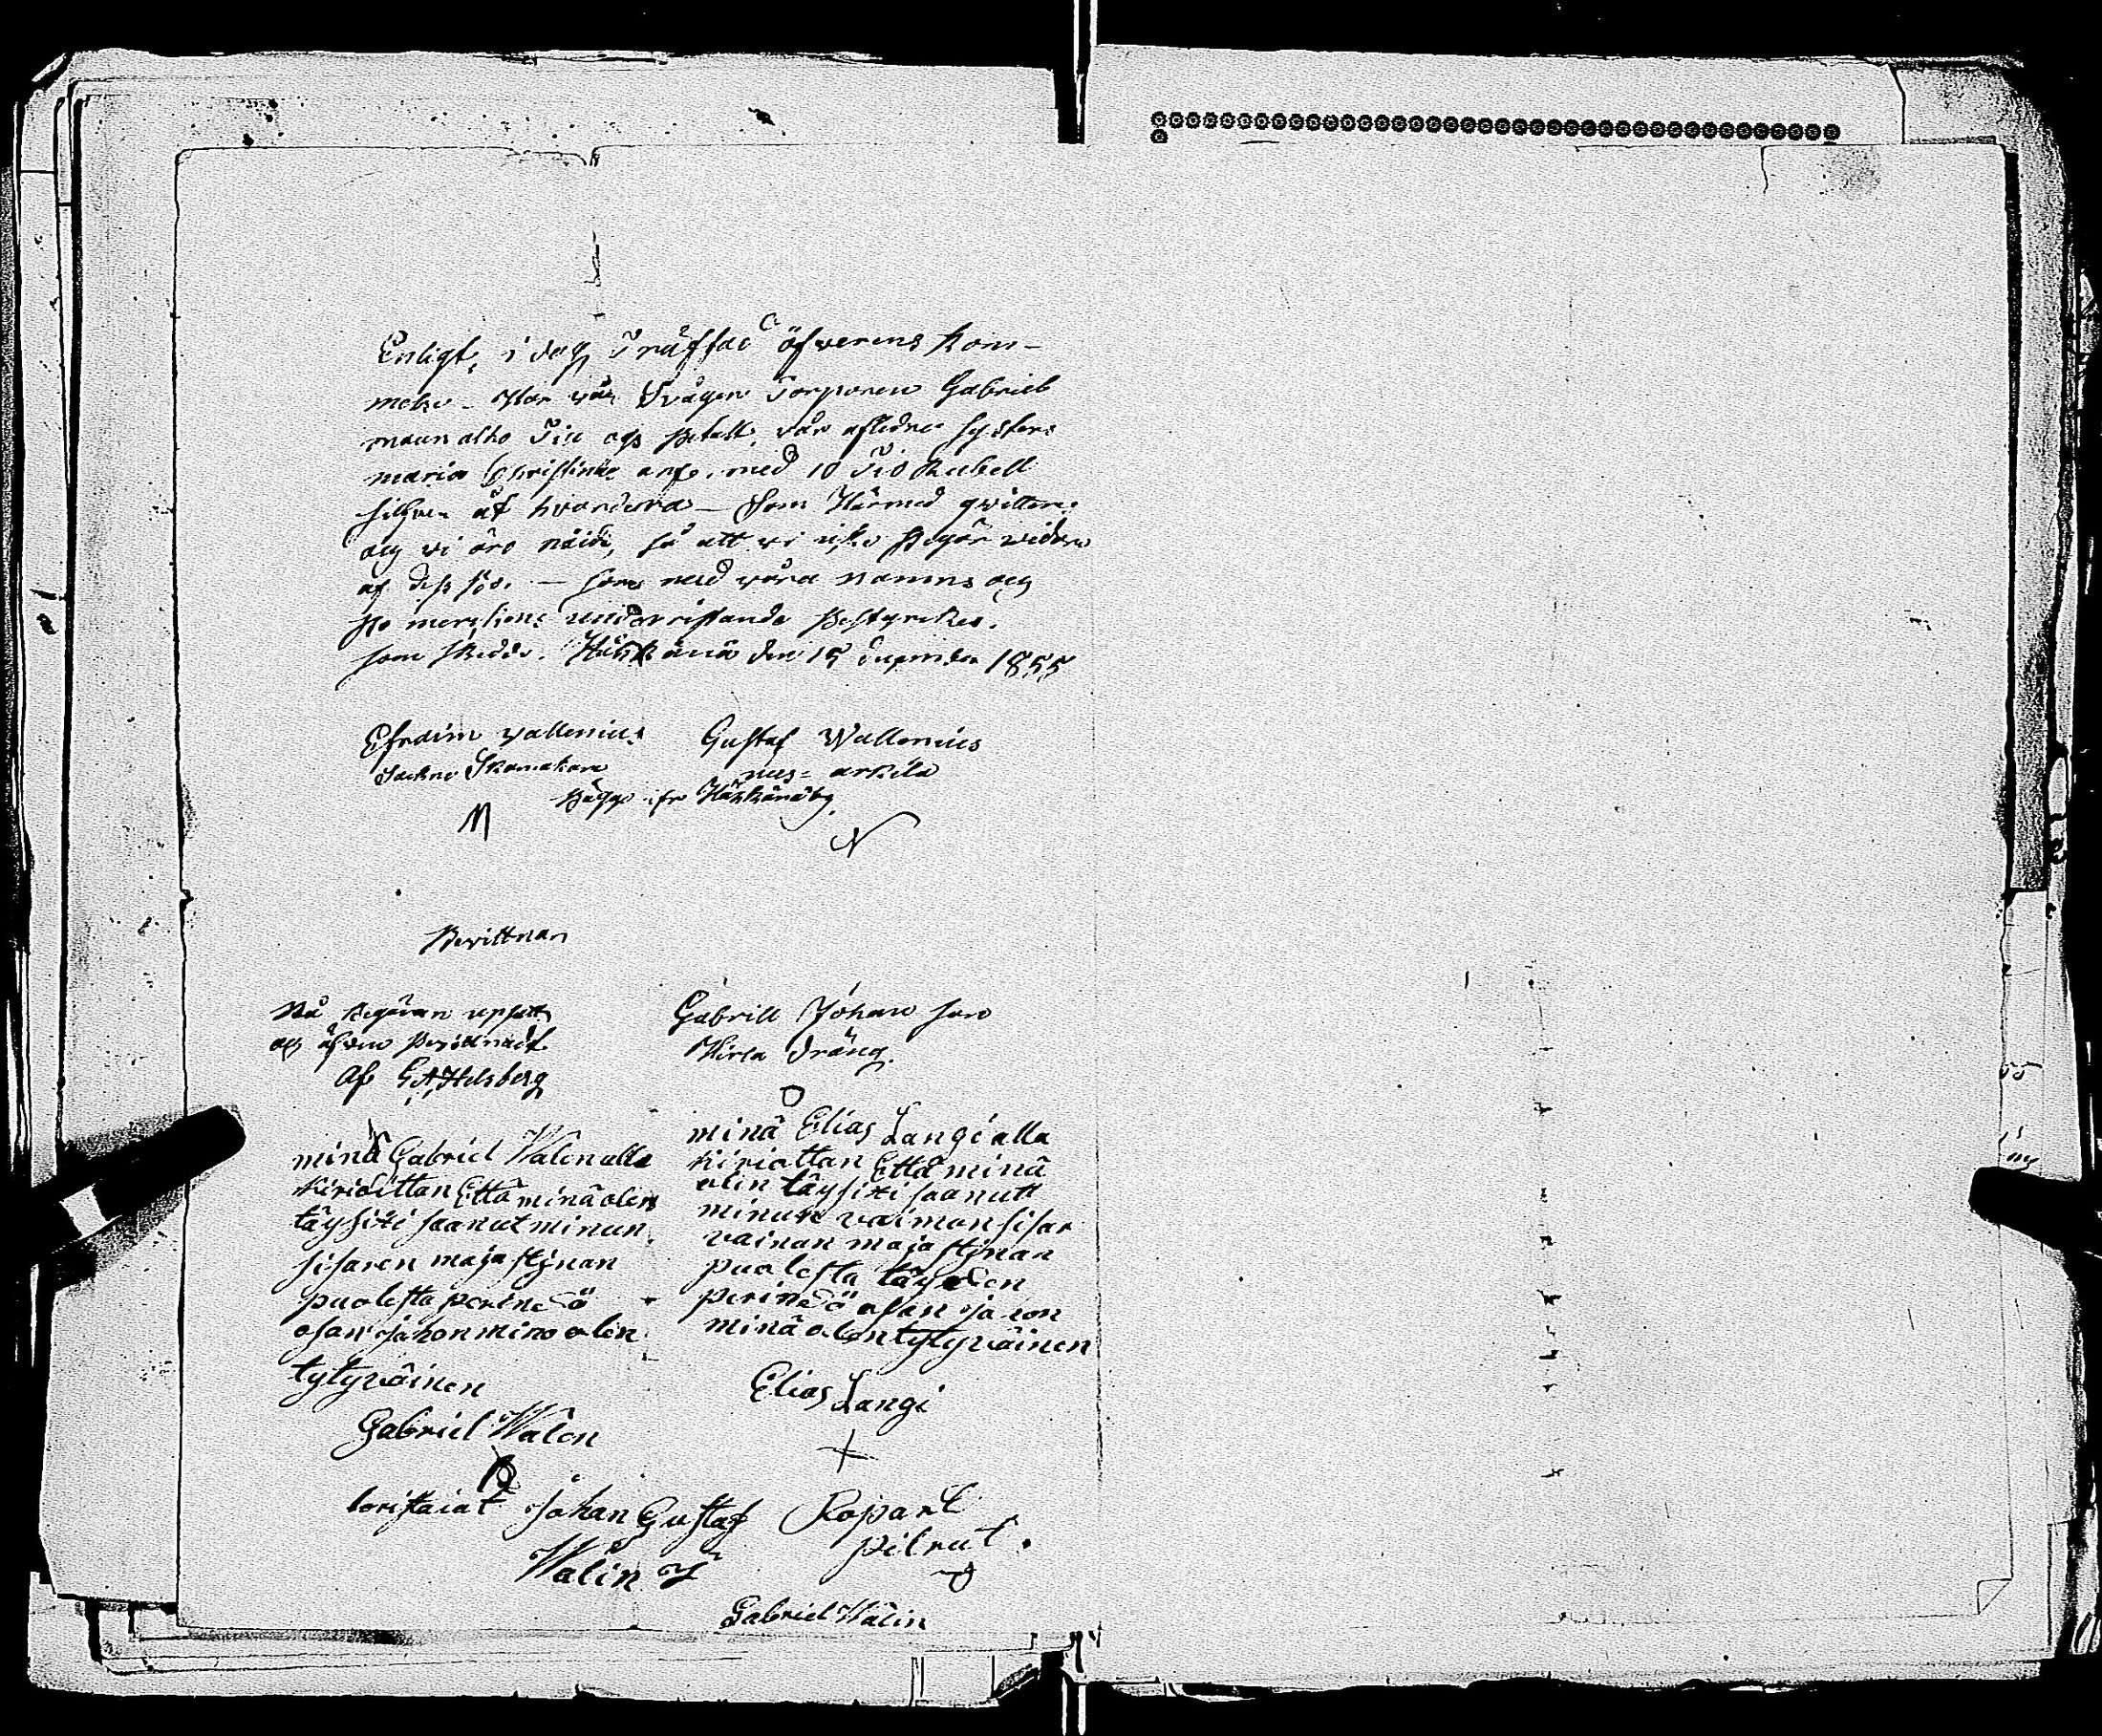 Enligt i dag Träffad öfverens kom-
melse - Har vår Svåger Torparen Gabriel
maunalho Till oss Betalt, vår aflidne systers
maria Christina arf, med 10 Tio Rubell
silfver åt hvardera - som Härmed qvitteras
och vi äro nöid, så att vi icke Begär widare
af dess Bo. - som med våra namns och
Bo merckens underristande Bestyrckes.
som skedde. Häskänä den 15 december 1855
Efraim wallenius Gustaf Wallenius
Sockne Skomakare
Bägge ifr Häskänäby
Bevittnar
På Begäran upsatt
och äfven Bevittnadt
Af G A Helsberg
Gabriel Johan son
Hirsa dräng
minä Gabriel Walen alla
kirioittan Että minä olen
täysixi saanut minun
sisaren maja stjnan
puolesta perinedö
osan ja hon mino olen
tytyväinen
Gabriel Walen
minä Elias Langi alla
kiriottan Että minä
olin täysixi saanutt
minun vaimon sisar
vainan maja stjnan
puolesta täyden
perinedö osan ja ion
minä olen tytyväinen
Elias Langi
toristaiat Johan Gustaf
Walin
Kopari
pilrut.
Gabriel Walin